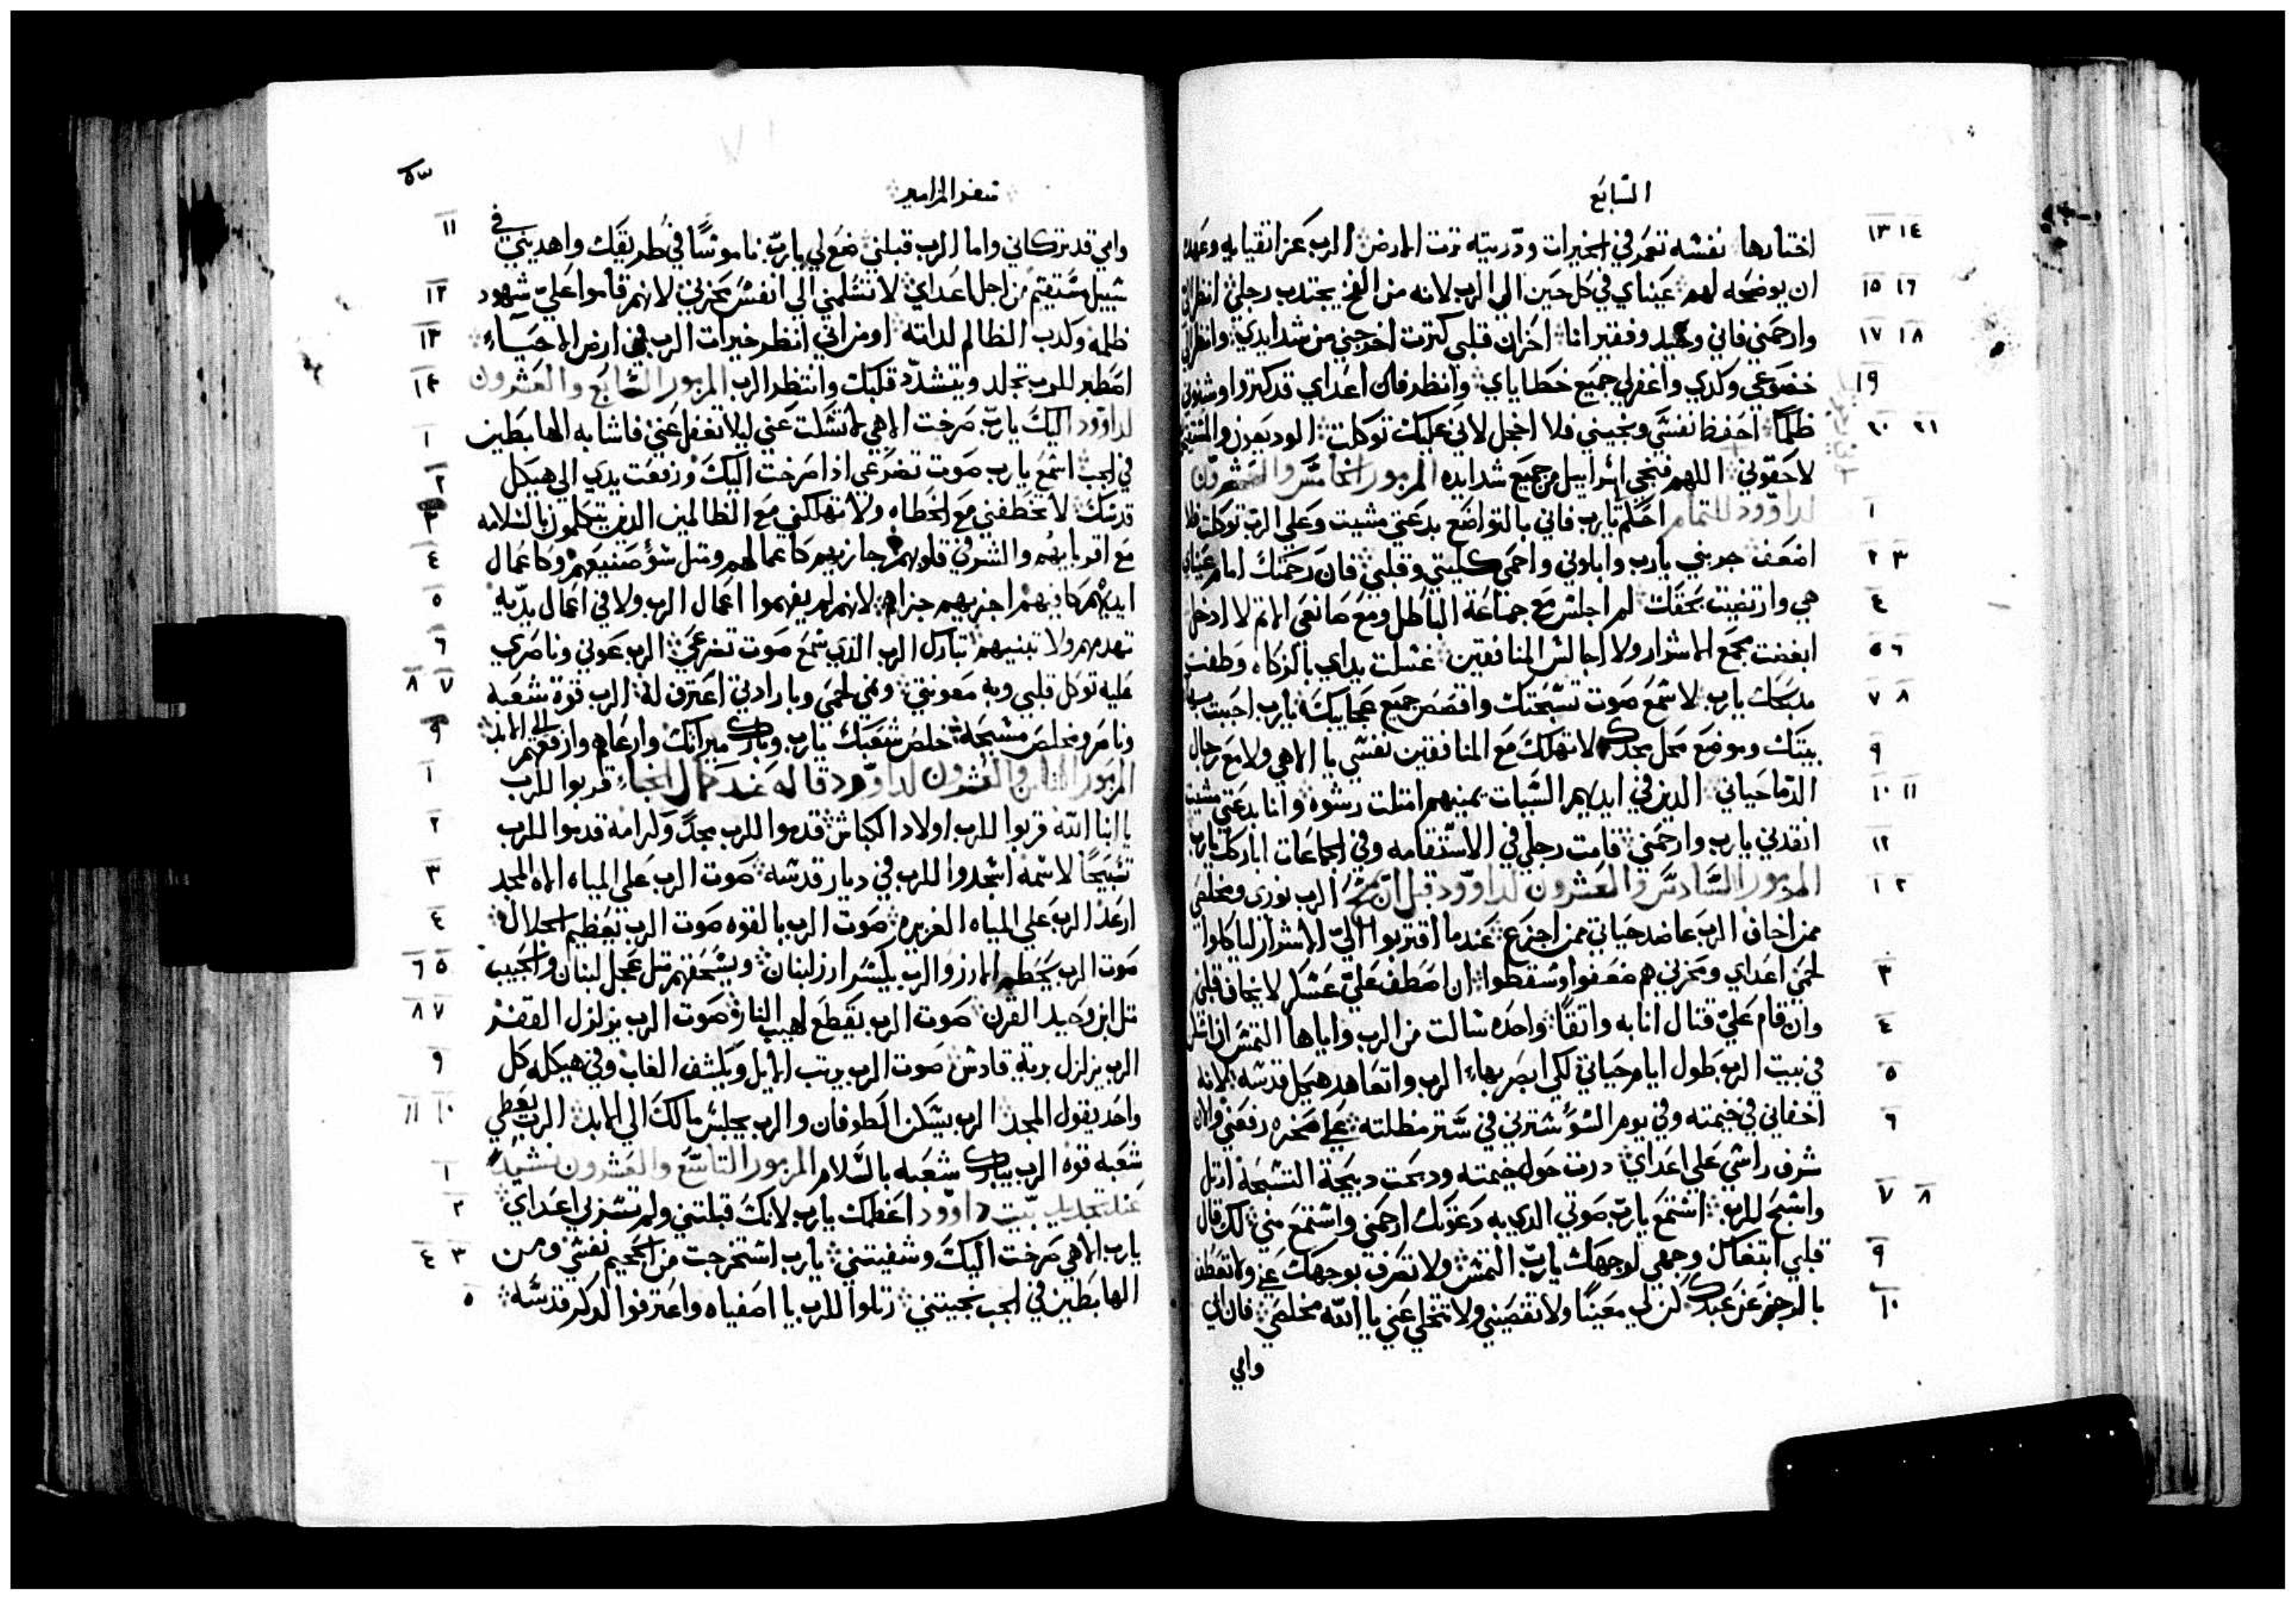 السابع
اختارها نفسه تعمر في الخيرات ودريته ترت الارض الرب عز اتقيايه وعهده
ان يوضحه لهم عيناي في كل حين الي الرب لانه من الفخ يجتدب رجلي انظر الي
وارحمني فاني وحيد وفقير انا احزان قلبي كترت اخرجني من شدايدي وانظر الي
خضوعي وكدي واغفر لي جميع خطاياي وانظر فان اعداي قد كتروا وشنوني
ظلما احفظ نفسي ونجيني فلا اخجل لاني عليك توكلت الوديعون والمستقيمين
لاحقوني اللهم فنجي اسراييل من جميع شدايده المزمور الخامس والعشرون
لداوود للتمام احكم لي يارب فاني بالتواضع بدعتي مشيت وعلي الرب توكلت فلا
اضعف جربني يارب وابلوني واحمي كليتي وقلبي فان رحمتك امام عيناي
هي وارتضيت بحقك لم اجلس مع جماعة الباطل ومع صانعي الاتم لا ادخل
ابغضت مجمع الاشرار ولا اجالس المنافقين غسلت يداي بالزكاه وطفت
بمدبحك يارب لاسمع صوت تسبحتك واقصص جميع عجايبك يارب احببت بها
بيتك وموضع محل مجدك لا تهلك مع المنافقين نفسي يا الاهي ولا مع رجال
الدما حياتي الدين في ايديهم السيات يمينهم امتلت رشوه وانا بدعتي مشيت
انقدني يارب وارحمني قامت رجلي في الاستقامه وفي الجماعات اباركك يارب
المزمور السادس والعشرون لداوود قبل ان يمسح الرب نوري ومخلصي
ممن اخاف الرب عاضد حياتي ممن اجزع عندما اقتربوا الي الاشرار لياكلوا
لحمي اعداي ومحزني هم ضعفوا وسقطوا ان اصطف علي عسكر لا يخاف قلبي
وان قام علي قتال انا به واتقا واحده سالت من الرب واياها التمس ان اسكن
في بيت الرب طول ايام حياتي لكي ابصر بهاء الرب واتعاهد هيكل قدسه لانه
اخفاني في خيمته وفي يوم السؤ سترني في ستر مظلته علي صخره رفعني والان
شرف راسي علي اعداي درت حول خيمته ودبحت دبيحة التسبحة ارتل
واسبح للرب استمع يارب صوتي الدي به دعوتك ارحمني واستمع مني لك قال
قلبي ابتغاك وجهي لوجهك يارب التمس ولا تصرف بوجهك عني ولا تعطف
بالرجز عن عبدك كن لي معينا ولا تقصيني ولا تتخلي عني يا الله مخلصي فان ابي
وامي
سفر المزامير
٥٣
وامي قد تركاني واما الرب قبلني ضع لي يارب ناموسا في طريقك واهديني في
سبيل مستقيم من اجل اعداي لا تسلمني الي انفس محزني لانهم قاموا علي شهود
ظلمه وكدب الظالم لداته اومن اني انظر خيرات الرب في ارض الاحياء
اصطبر للرب تجلد ويتشدد قلبك وانتظر الرب المزمور السابع والعشرون
لداوود اليك يارب صرخت الاهي لا تسكت عني ليلا تغفل عني فاشابه الهابطين
في الجب اسمع يارب صوت تضرعي ادا صرخت اليك ورفعت يدي الي هيكل
قدسك لا تخطفني مع الخطاه ولا تهلكني مع الظالمين الدين يتكلمون بالسلامه
مع اقربايهم والشر في قلوبهم جازيهم كاعمالهم ومتل سؤ صنيعهم وكاعمال
ايديهم كافيهم اجزيهم جزاهم لانهم لم يفهموا اعمال الرب ولا في اعمال يديه
تهدمهم ولا تبنيهم تبارك الرب الدي سمع صوت تضرعي الرب عوني وناصري
عليه توكل قلبي وبه معونتي ونمي لحمي وبارادتي اعترف له الرب قوة شعبه
وناصر ومخلص مسيحه خلص شعبك يارب وبارك ميراتك وارعاهم وارفعهم الي الابد
المزمور التامن والعشرون لداوود قاله عند كمال الخباء قربوا للرب
يا ابنا الله قربوا للرب اولاد الكباش قدموا للرب مجدا وكرامه قدموا للرب
تسبيحا لاسمه اسجدوا للرب في ديار قدسه صوت الرب علي المياه الاه المجد
ارعد الرب علي المياه الغزيره صوت الرب بالقوه صوت الرب بعظيم الجلال
صوت الرب يحطم الارز والرب يكسر ارز لبنان ويسحقهم متل عجل لبنان والحبيب
متل ابن وحيد القرن صوت الرب يقطع لهيب النار صوت الرب يزلزل القفر
الرب يزلزل برية قادش صوت الرب يرتب الايل ويكشف الغاب وفي هيكله كل
واحد يقول المجد الرب يسكن الطوفان والرب يجلس مالكا الي الابد الرب يعطي
شعبه قوه الرب يبارك شعبه بالسلام المزمور التاسع والعشرون تسبيحة
عند تجديد بيت داوود اعظمك يارب لانك قبلتني ولم تسر بي اعداي
يارب الاهي صرخت اليك وشفيتني يارب استخرجت من الجحيم نفسي ومن
الهابطين في الجب نجيتني رتلوا للرب يا اصفياه واعترفوا لدكر قدسه